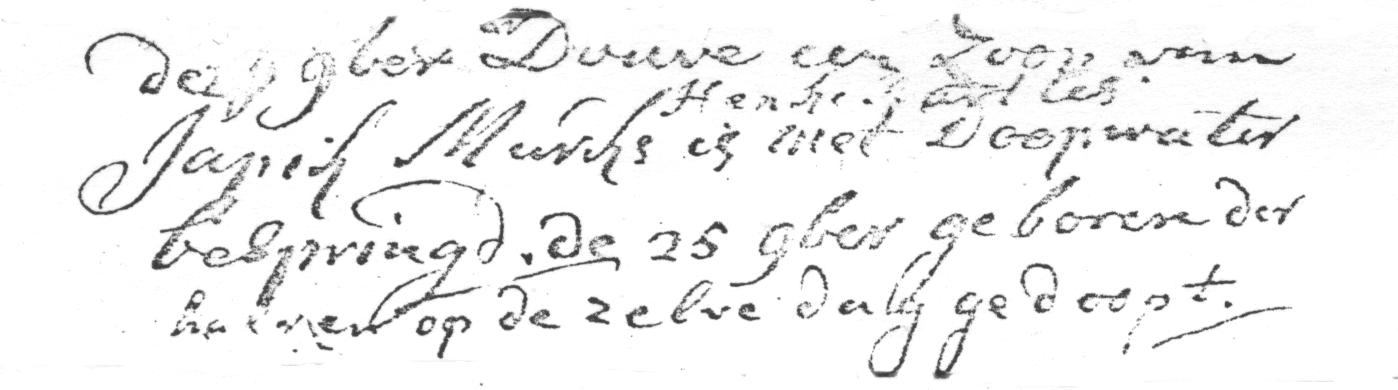 de 9 9ber Douwe een Zoon van
Henke
Japik Murks is met Doopwater
bespringd. de 25 9ber geboren der
halven op de zelve dag gedoopt.